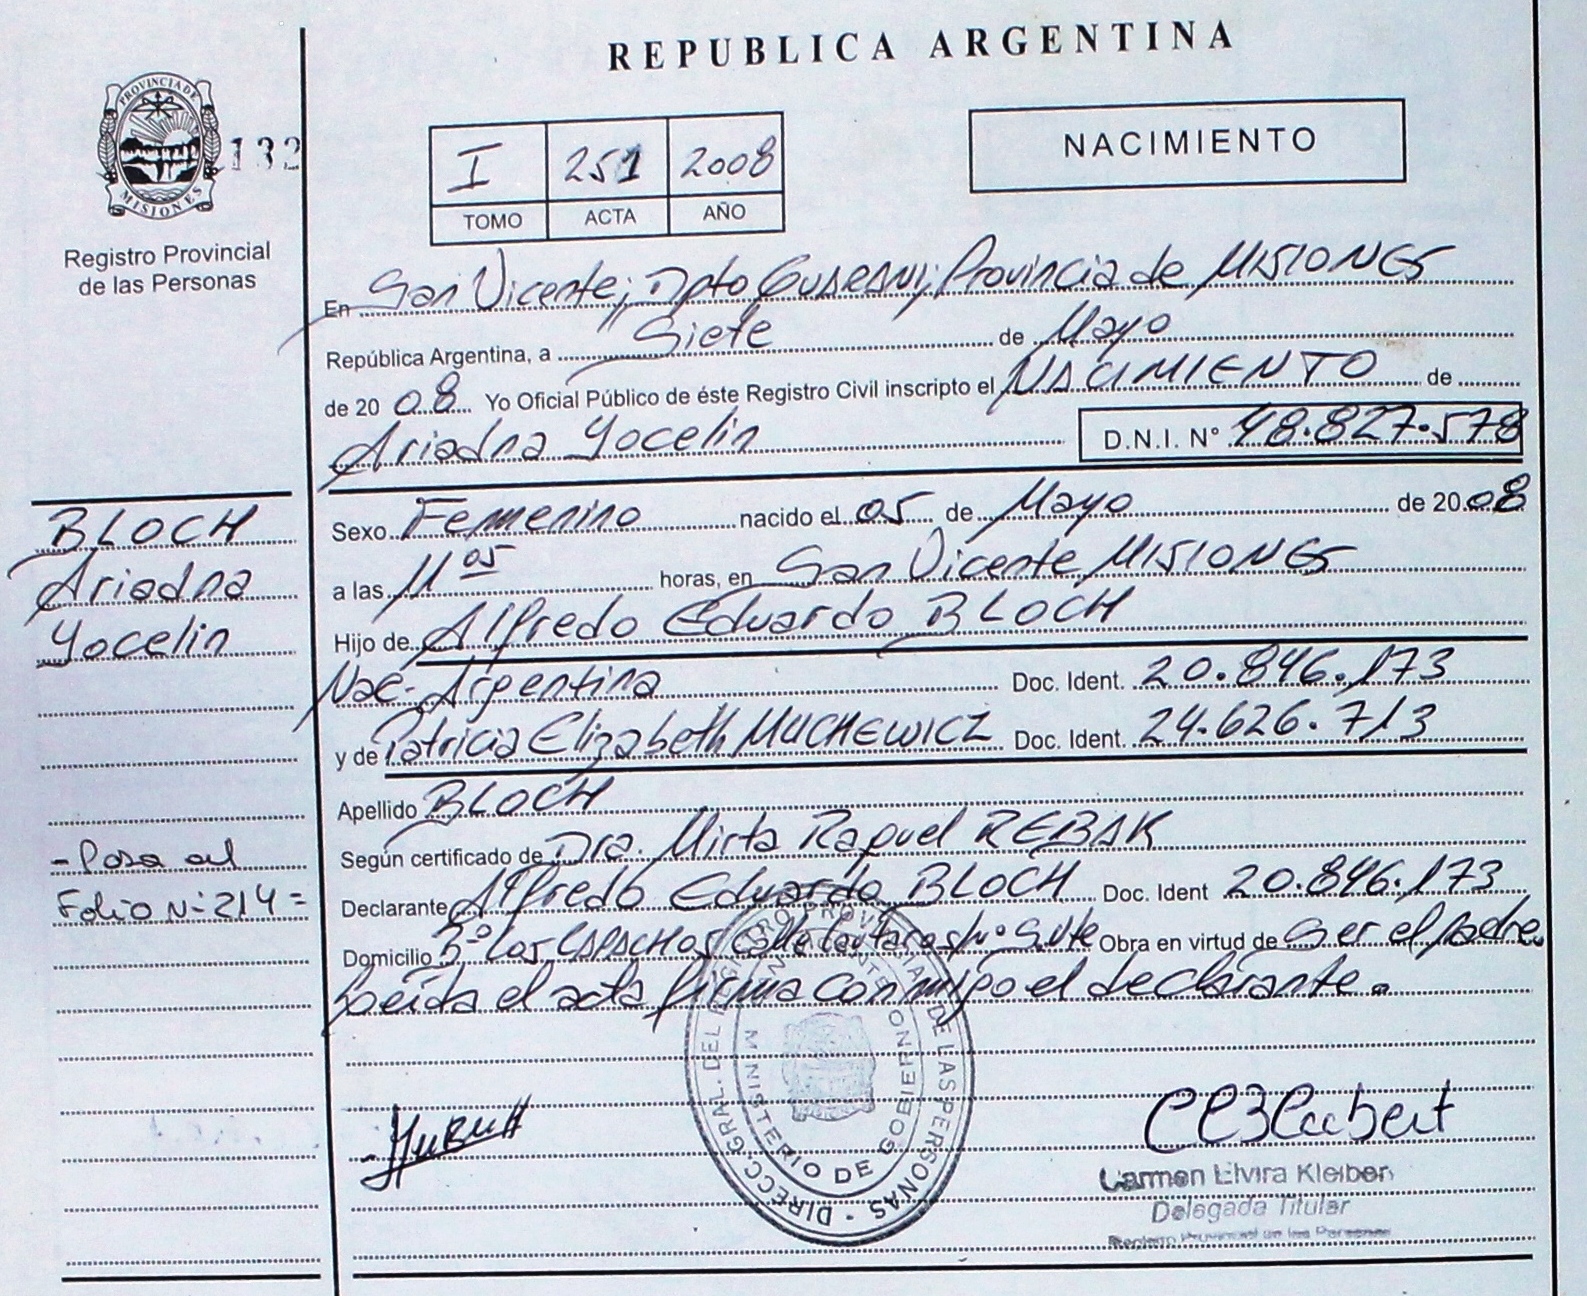 REPUBLICA ARGENTINA
PROVINCIA DE
MISIONES
132
Registro Provincial
de las Personas
I 251 2008
TOMO ACTA AÑO
NACIMIENTO
En San Vicente; Dpto GUARANI; Provincia de MISIONES
República Argentina, a Siete de Mayo
de 20 08 Yo Oficial Público de éste Registro Civil inscripto el NACIMIENTO de
Ariadna Yocelin D.N.I. N° 48.827.578
BLOCH
Ariadna
Yocelin
Sexo Femenino nacido el 05 de Mayo de 2008
a las 11 05 horas, en San Vicente MISIONES
Hijo de Alfredo Eduardo BLOCH
Nac. Argentina Doc. Ident. 20.846.173
y de Patricia Elizabeth MUCHEWICZ Doc. Ident. 24.626.713
Apellido BLOCH
Según certificado de Dra. Mirta Raquel REBAK
Declarante Alfredo Eduardo BLOCH Doc. Ident 20.846.173
Domicilio B° Los CAPACHOS Calle Lautaro s/n° S.Vte Obra en virtud de Ser el padre
Leída el acta firma conmigo el declarante.
- Pasa al
Folio N° 214 =
DIRECC. GRAL. DEL REGISTRO PROVINCIAL DE LAS PERSONAS
MINISTERIO DE GOBIERNO
Carmen Elvira Kleiber
Delegada Titular
Registro Provincial de las Personas